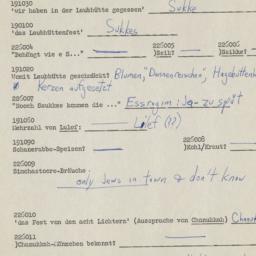 191030
'wir haben in der Laubhütte gegessen' Sukke
190100
'das Laubhüttenfest' Sukkes
225004 225005 225006
"Behängt wie e S..." )Seih? )Seikke?
191020
Womit Laubhütte geschmückt? Blumen, "Dannereischen", Hagebutten
Kerzen aufgesetzt
225007
"Nooch Sukkes kummen die ..." Essrogim: Ja - zu spät
191050
Mehrzahl von Lulef: Lulef (??)
191090 225008
Scharrabbe-Speisen? )Kohl/Kraut?
225009
Simchastoore-Bräuche
only Jews in town & don't know
225010
'das Fest von den acht Lichtern' (Aussprache von Chanukkah)
225011
)Chanukkah-Männchen bekannt?